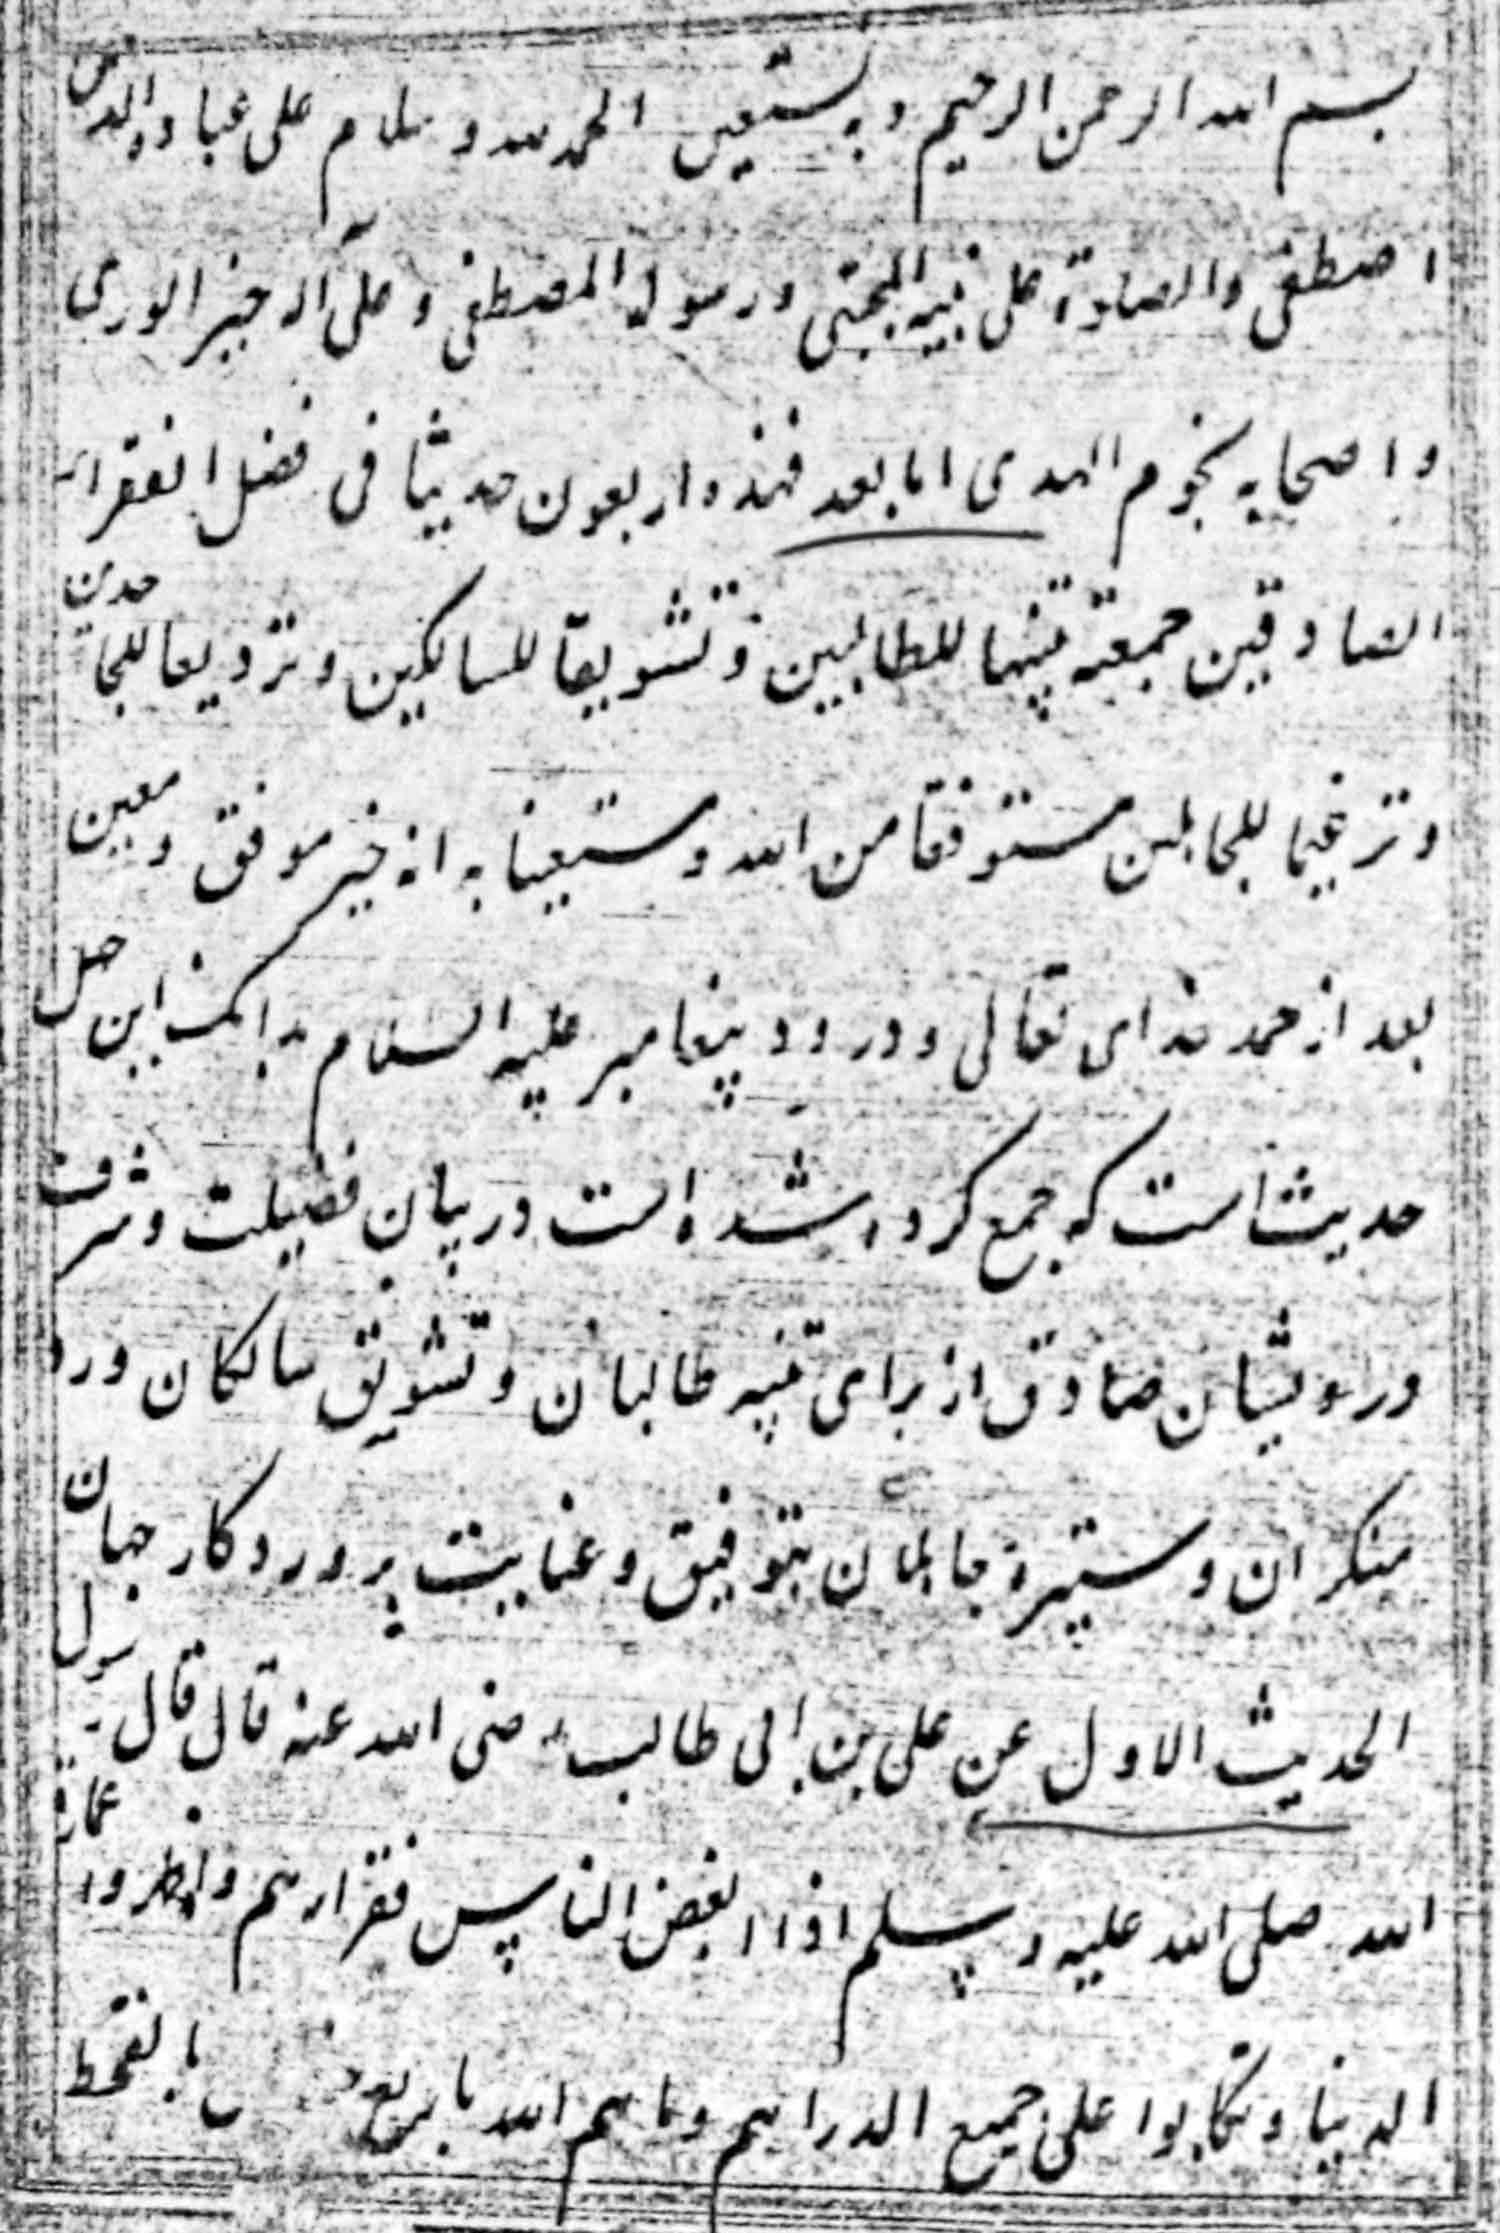 بسم الله الرحمن الرحيم وبه نستعين الحمد لله وسلام على عباده الذين
اصطفى والصلوة على نبيه المجتبى ورسوله المصطفى وعلى آله خير الورى
واصحابه نجوم الهدى اما بعد فهذه اربعون حديثا فى فضل الفقراء
الصادقين جمعته تنبيها للطالبين وتشويقا للسالكين وترديعا للجاحدين
وترغيما للجاهلين مستوفقا من الله ومستعينا به انه خير موفق ومعين
بعد از حمد خداى تعالى ودرود پيغامبر عليه السلام بدانک اين چهل
حديثست كه جمع كرده شده است در بيان فضيلت وشرف
درويشان صادق از براى تنبيه طالبان وتشويق سالكان ورد
منكران وستيزه جاهلان بتوفيق وعنايت پروردكار جهان
الحديث الاول عن على بن ابى طالب رضى الله عنه قال قال رسول
الله صلى الله عليه وسلم اذا ابغض الناس فقرارهم واظهروا عمارة
الدنيا وتكالبوا على جميع الدراهم رماهم الله باربع بالقحط